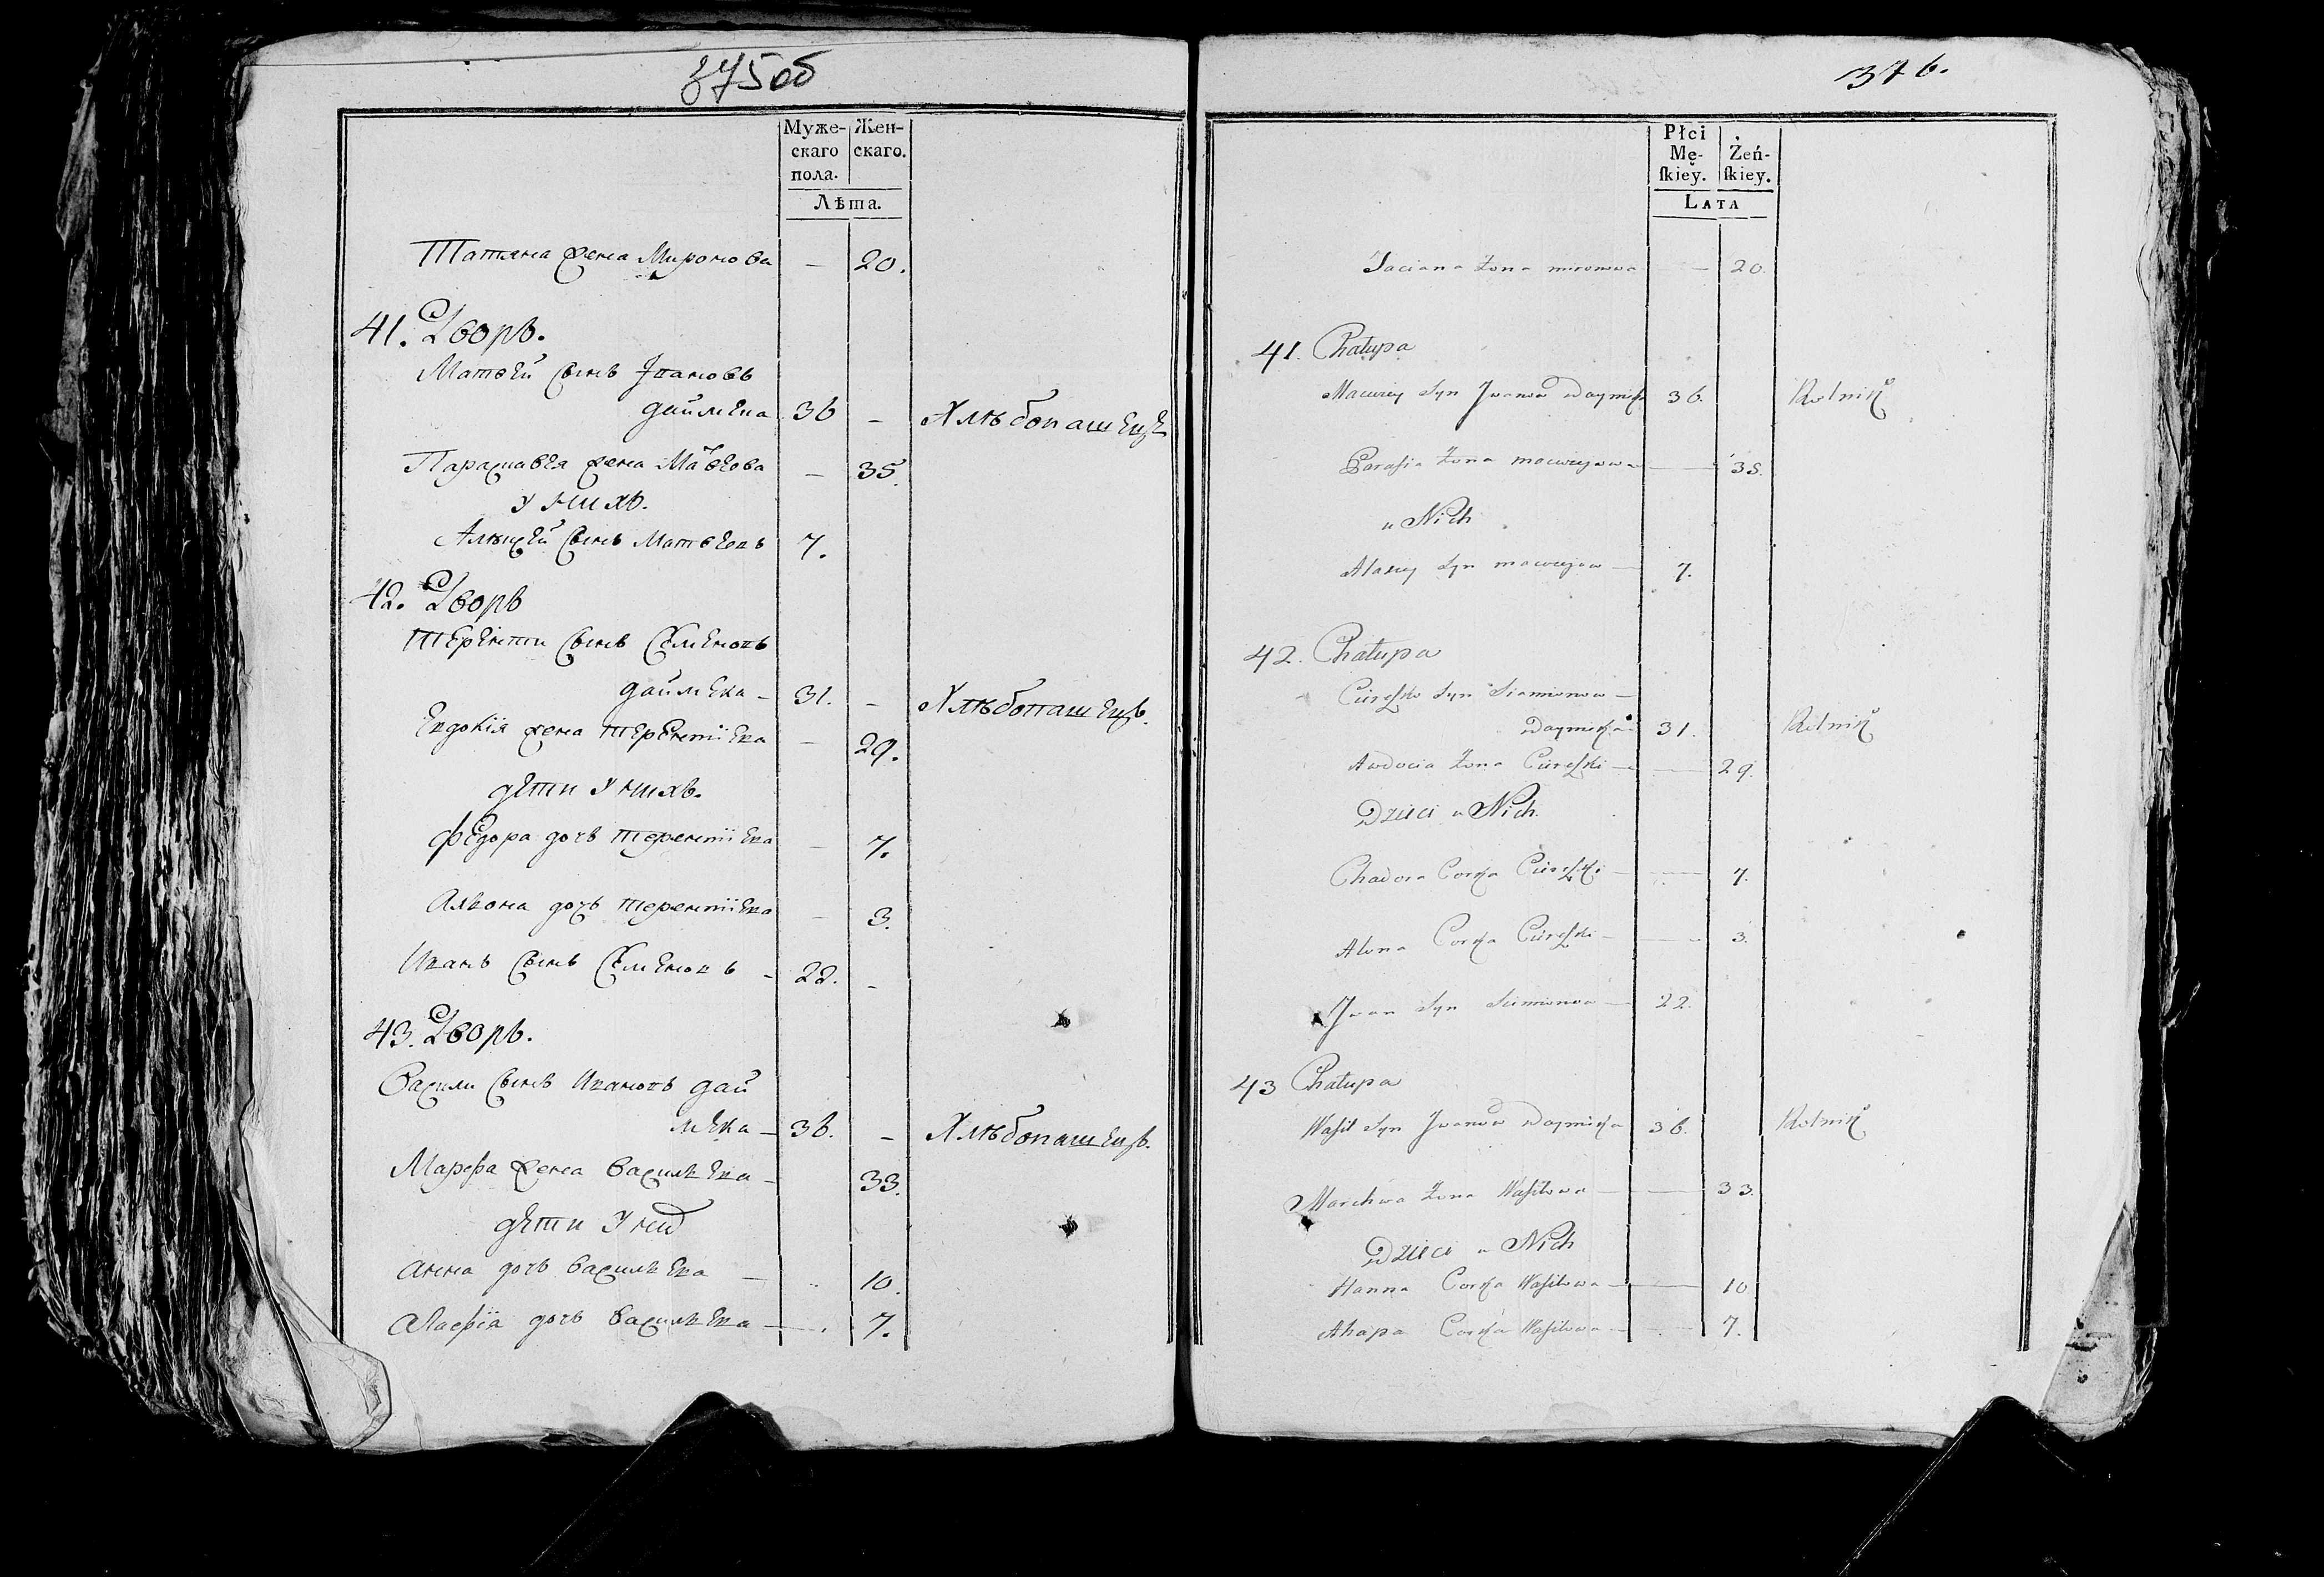 375 об
Муже-
скаго
пола.
Жен-
скаго.
Лѣта.
Татяна жена Миронова — 20.
41. Дворъ.
Матвей сынъ Ивановъ
даймека 36 — Хлѣбопашецъ
Параскавея жена Матвеева — 35.
у нихъ.
Алексей сынъ Матвеевъ 7.
42. Дворъ
Терентти сынъ Семеновъ
даймека — 31. — Хлѣбопашецъ.
Евдокія жена Терентіева — 29.
дети у нихъ.
Федора дочь Терентіева — 7.
Алиона дочь Терентіева — 3.
Иванъ сынъ Семеновъ — 22. —
43. Дворъ.
Васили сынъ Ивановъ дай
мека — 36. — Хлѣбопашецъ.
Марфа жена Васильева — 33.
дети у нихъ
Анна дочь Васильева — 10.
дочь Васильева — 7.
376.
Płci
Mę-
skiey.
Żeń-
skiey.
LATA
Taciana Żona mironowa — 20.
41. Chałupa
Maciwiey Syn Jwanow Daymieka 36. Rolnik
Parasia Żona maciwiejowa — 35.
u Nich
Alaxiey Syn maciwiejow — 7.
42. Chałupa
Cireszko Syn Siamionow —
Daymieka 31. Rolnik
Awdocia Żona Cireszki — 29.
Dzieci u Nich.
Chadora Corka Cireszki — 7.
Alona Corka Cireszki — 3.
Jwan Syn Siemionow — 22.
43 Chałupa
Wasil Syn Jwanow Daymieka 36. Rolnik
Marchwa Żona Wasilowa — 33.
Dzieci u Nich
Hanna Corka Wasilowa — 10
Ahapa Corka Wasilowa — 7.